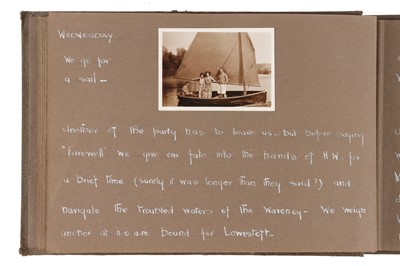 WEDNESDAY
We go for
a sail —
Another of the party has to leave us - but before saying
"Farewell" we give our fate into the hands of H.W. for
a brief time (surely it was longer than they said?) and
navigate the troubled waters of the Waveney - We weigh
anchor at a.m bound for Lowestoft.